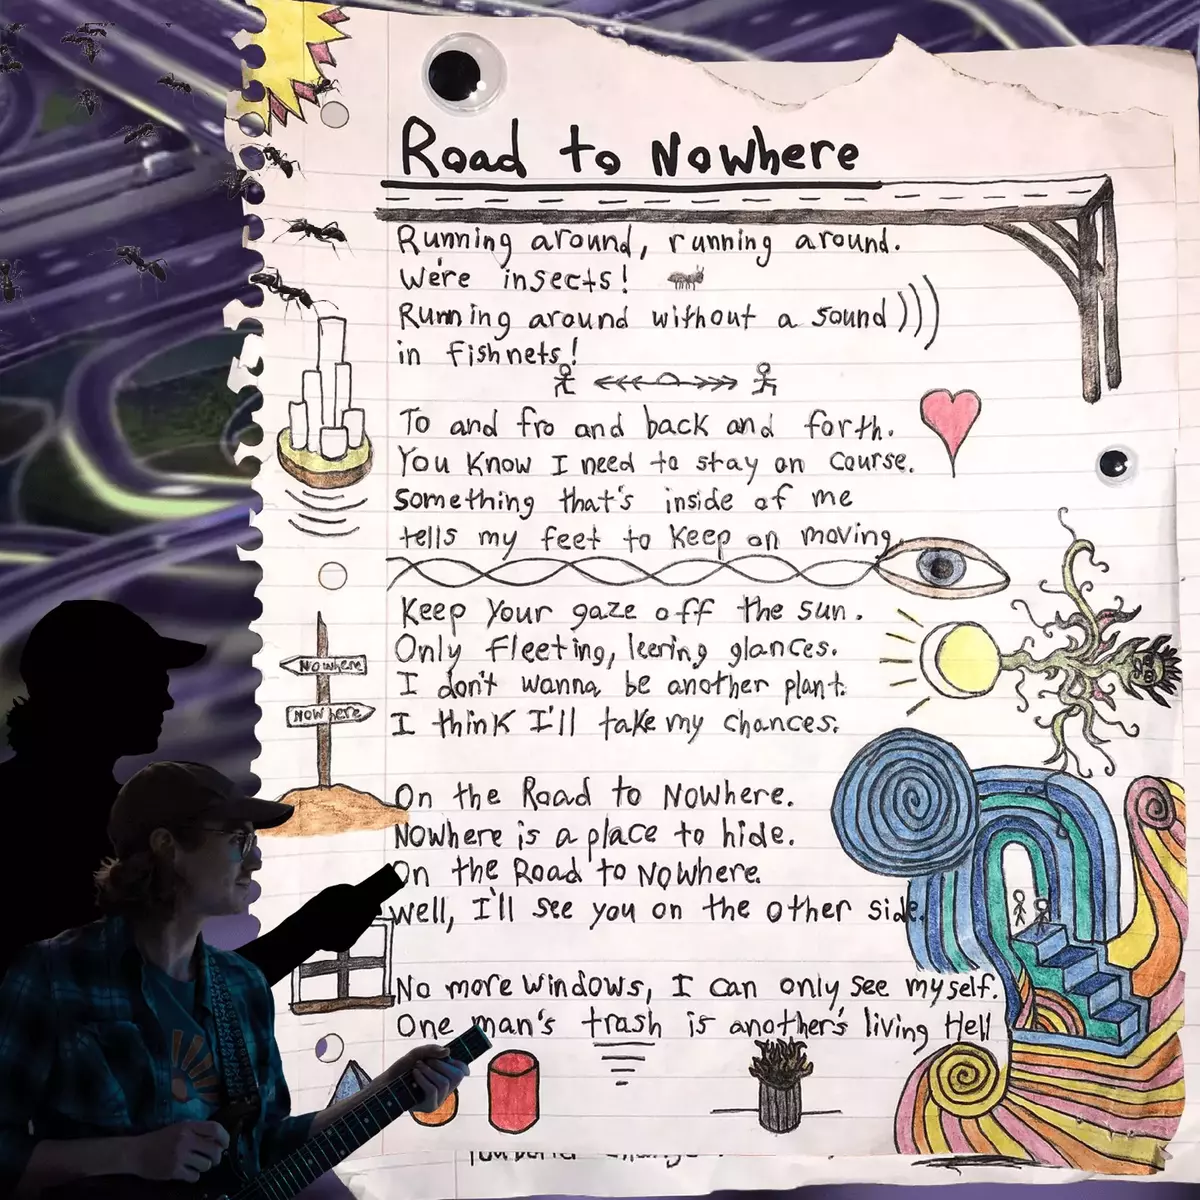 Road to Nowhere
Running around, running around.
We're insects!
Running around without a sound)))
in fishnets!
To and fro and back and forth.
You know I need to stay on course.
Something that's inside of me
tells my feet to keep on moving.
Keep your gaze off the sun.
Only fleeting, leering glances.
I don't wanna be another plant.
I think I'll take my chances.
Nowhere
Now here
On the Road to Nowhere.
Nowhere is a place to hide.
On the Road to Nowhere.
Well, I'll see you on the other side.
No more windows, I can only see myself.
One man's trash is another's living Hell